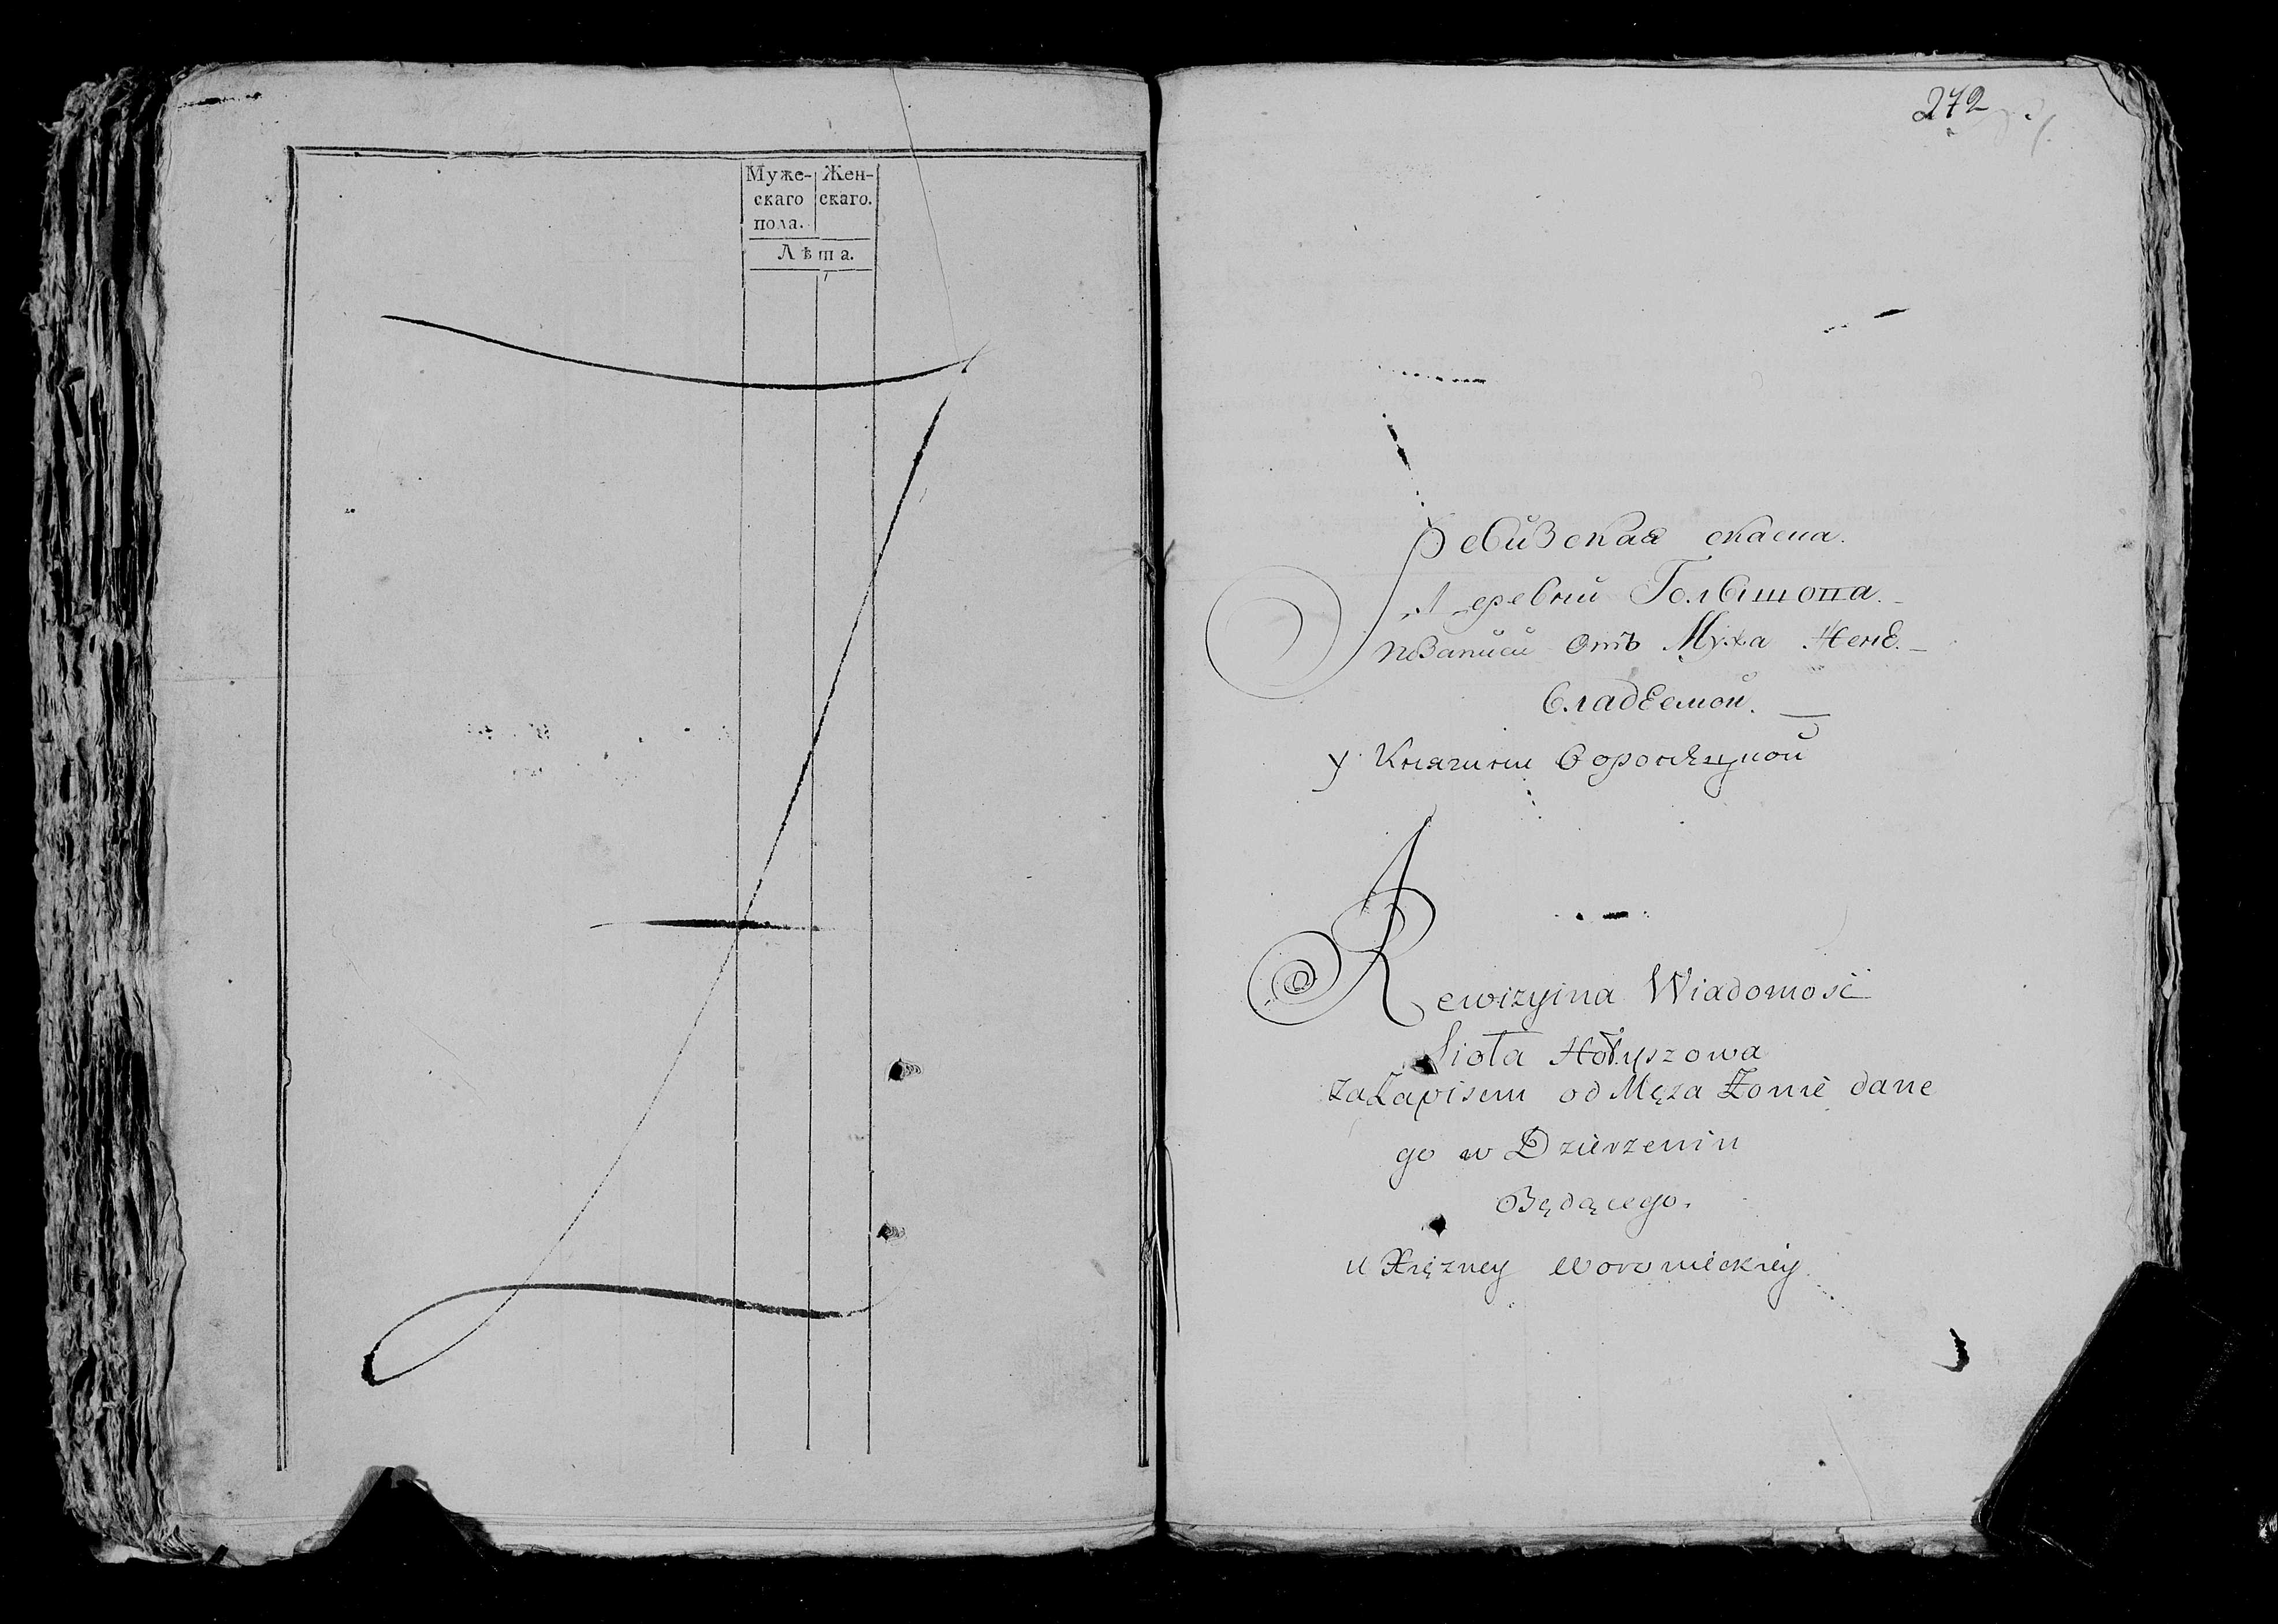 Муже-
скаго
пола.
Жен-
скаго.
Лѣта.
272
Ревизская скаска.
Деревни Голышопа
по Записи отъ Мужа Женѣ
владѣемой.
у Княгини Воронѣцкой
Rewizyina Wiadomość
Sioła Hołyszowa
za Zapisem od Męża Żonie dane
go w Dzierżeniu
Będącego.
u Xiężney Woronieckiey